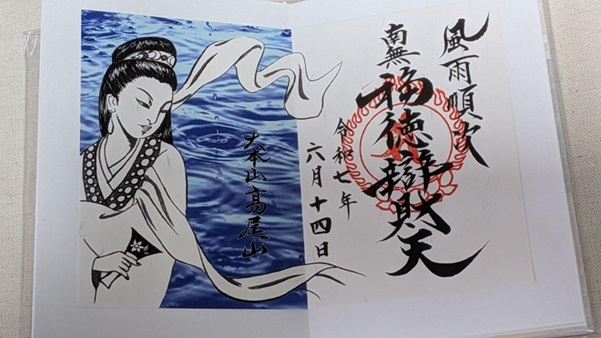 風雨順次
南無
福徳辯財天
令和七年
六月十四日
大本山高尾山